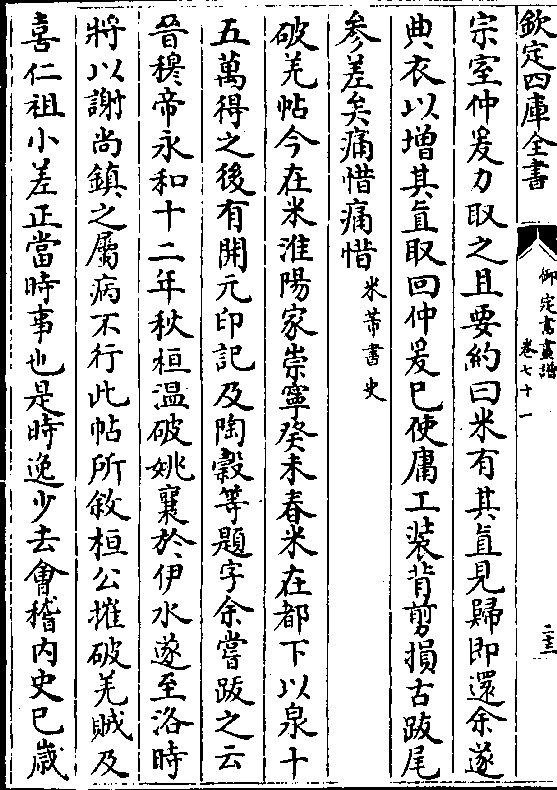 欽定四庫全書
御定書畫譜
卷七十一
二十三
宗室仲爰力取之且要約曰米有其直見歸即還余遂
典衣以增其直取回仲爰已使庸工装背剪損古跋尾
參差矣痛惜痛惜米芾書史
破羌帖今在米淮陽家崇寧癸未春米在都下以泉十
五萬得之後有開元印記及陶穀等題字余嘗跋之云
晉穆帝永和十二年秋桓温破姚襄於伊水遂至洛時
將以謝尚鎮之屬病不行此帖所敘桓公摧破羌賊及
喜仁祖小差正當時事也是時逸少去㑹稽内史已歲